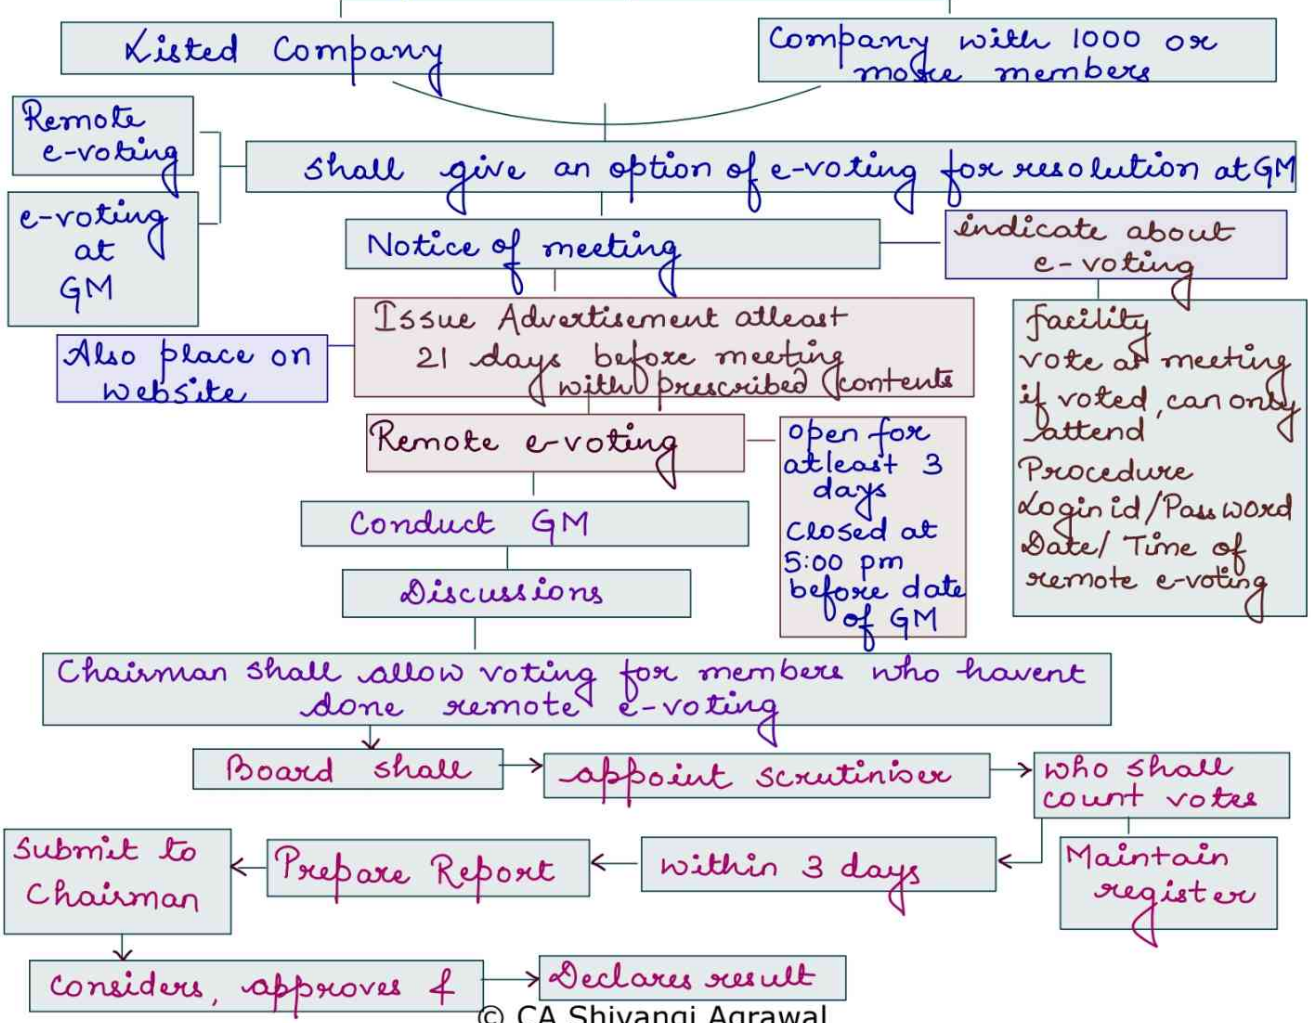 Listed Company
Company with 1000 or
more members
Remote
e-voting
e-voting
at
GM
shall give an option of e-voting for resolution at GM
Notice of meeting
indicate about
e-voting
Issue Advertisement atleast
21 days before meeting
with prescribed contents
Also place on
website
facility
vote at meeting
if voted, can only
attend
Procedure
Login id/Password
Date/ Time of
remote e-voting
Remote e-voting
open for
atleast 3
days
Closed at
5:00 pm
before date
of GM
Conduct GM
Discussions
Chairman shall allow voting for members who havent
done remote e-voting
Board shall
appoint scrutiniser
who shall
count votes
Maintain
register
within 3 days
Prepare Report
Submit to
Chairman
Considers, approves &
Declares result
© CA Shivangi Agrawal